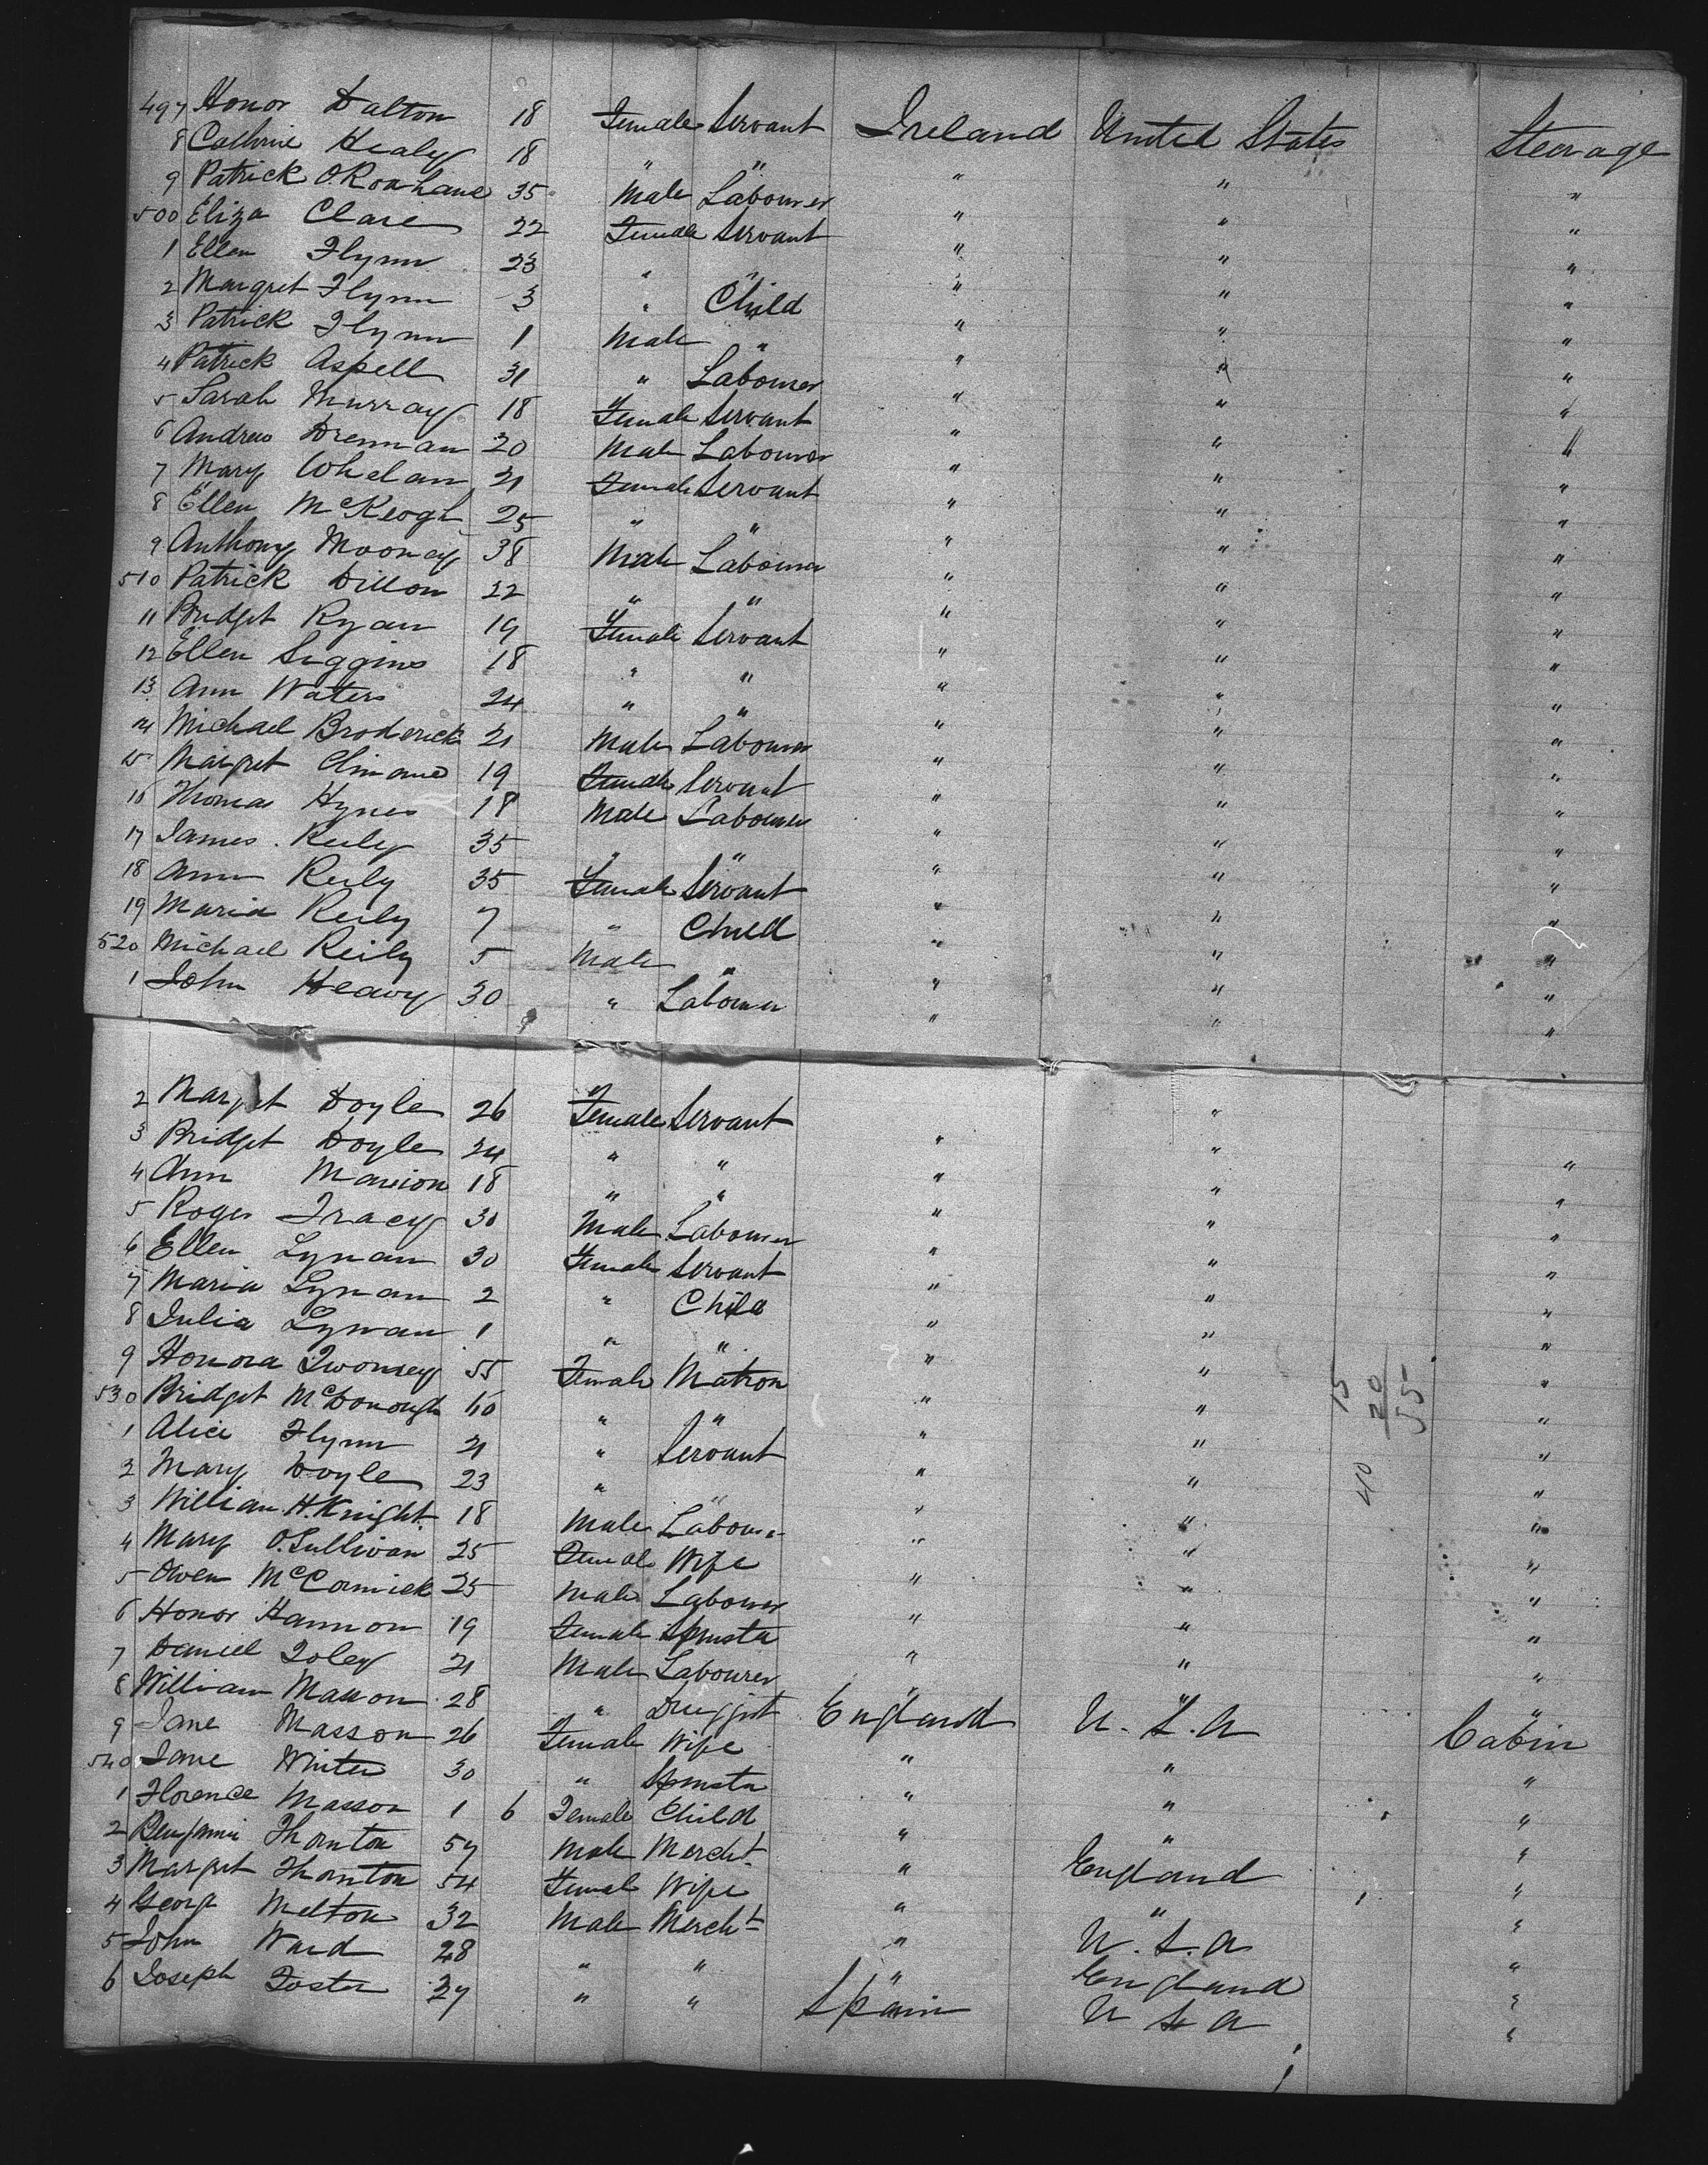 497 Honor Dalton 18 Female Servant Ireland United States Steerage
8 Cathrine Healy 18 " " " " "
9 Patrick O.Roahane 35 Male Labourer " " "
500 Eliza Clare 22 Female Servant " " "
1 Ellen Flynn 23 " " " " "
2 Margret Flynn 3 " Child " " "
3 Patrick Flynn 1 Male " " " "
4 Patrick Aspell 31 " Labourer " " "
5 Sarah Murray 18 Female Servant " " "
6 Andrew Drennan 20 Male Labourer " " "
7 Mary Whelan 21 Female Servant " " "
8 Ellen McKeogh 25 " " " " "
9 Anthony Mooney 38 Male Labourer " " "
510 Patrick Dillon 22 " " " " "
11 Bridget Ryan 19 Female Servant " " "
12 Ellen Siggins 18 " " " " "
13 Ann Waters 24 " " " " "
14 Michael Broderick 21 Male Labourer " " "
15 Margret 19 Female Servant " " "
16 Thomas Hynes 18 Male Labourer " " "
17 James Reily 35 " " " " "
18 Ann Reily 35 Female Servant " " "
19 Maria Reily 7 " Child " " "
520 Michael Reily 5 Male " " " "
1 John Heavy 30 " Labourer " " "
2 Margret Doyle 26 Female Servant " "
3 Bridget Doyle 24 " " " " "
4 Ann Manion 18 " " " " "
5 Roger Tracy 30 Male Labourer " " "
6 Ellen Lynan 30 Female Servant " " "
7 Maria Lynan 2 " Child " " "
8 Julia Lynan 1 " " " " "
9 Honora Twomey 55 Female Matron " " "
530 Bridget McDonough 60 " " " " "
1 Alice Flynn 21 " Servant " " "
2 Mary Doyle 23 " " " " "
3 William H. Knight 18 Male Labourer " " "
4 Mary O.Sullivan 25 Female Wife " " "
5 Owen McCormick 25 Male Labourer " " "
6 Honor Hannon 19 Female Spinster " " "
7 Daniel Foley 21 Male Labourer " " "
8 William Masson 28 " Druggist England U.S.A Cabin
9 Jane Masson 26 Female Wife " " "
540 Jane Winter 30 " Spinster " " "
1 Florence Masson 1 6 Female Child " " "
2 Benjamin Thornton 57 Male Mercht " England "
3 Margret Thornton 54 Female Wife " " "
4 George Melton 32 Male Mercht " U.S.A "
5 John Ward 28 " " " England "
6 Joseph Foster 27 " " Spain U S A "
15
20
55
40